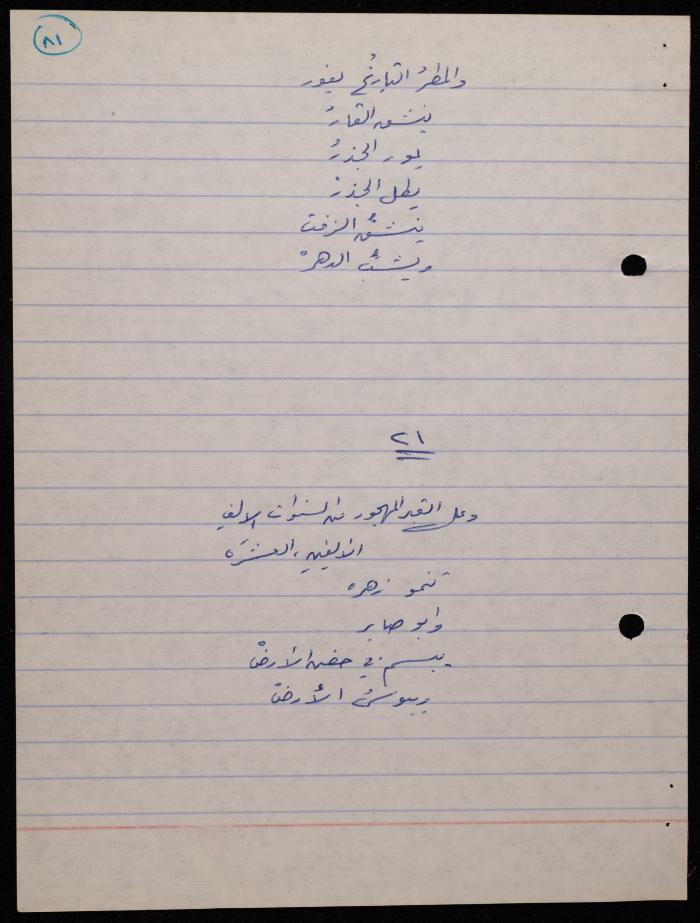 ٨١
والمطرُ التاريخُ يفور
ينشق القارُ
يمور الجذرُ
يطل الجذرْ
ينشقُّ الزفت
ويشبُّ الدهرْ
٢١
وعلى القبر المهجور من السنوات الالفِ
الالفينِ، العشرَه
تنمو زهره
وابو صابر
يبسم في حضن الارضْ
ويبوسُ الأرضْ